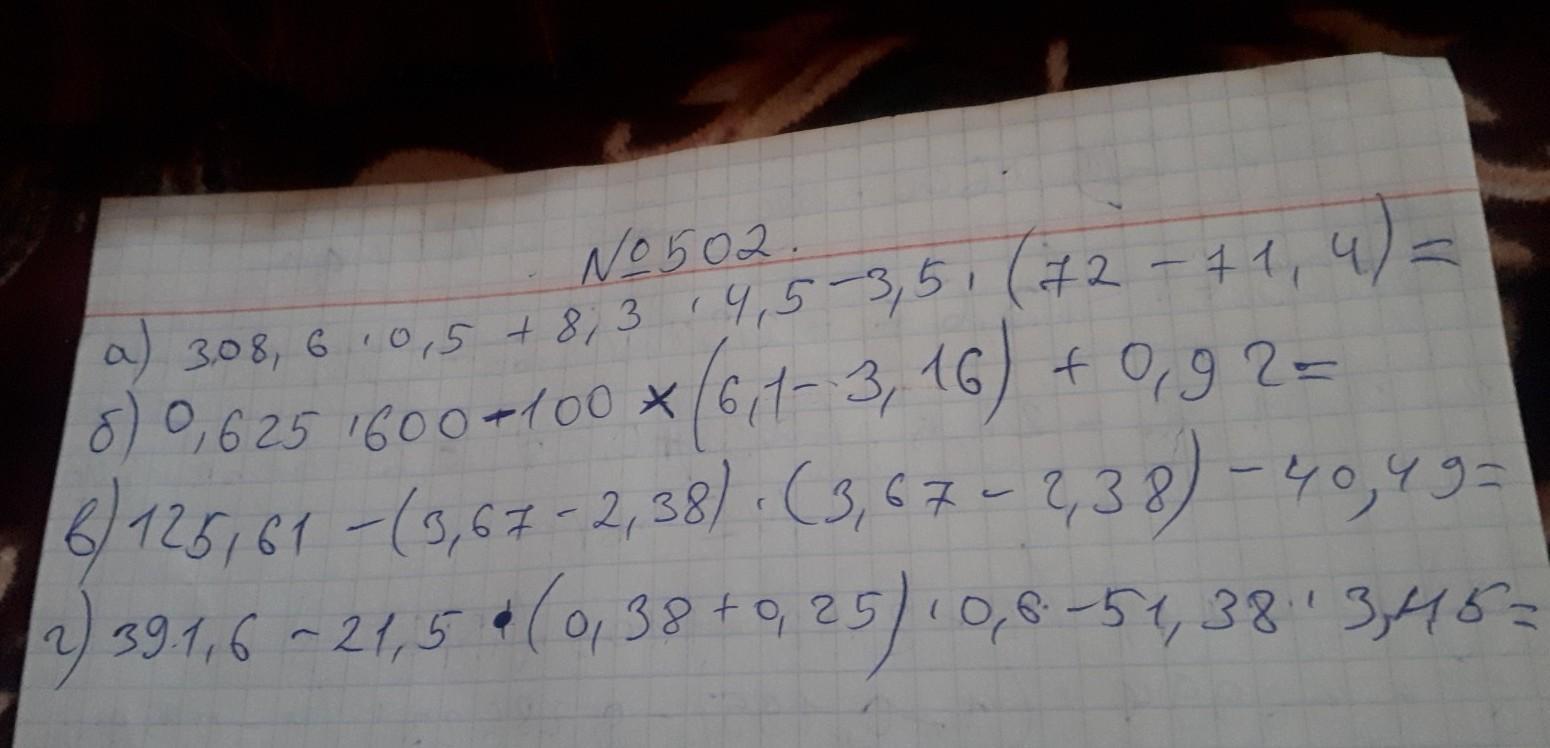 №502.
а) 308,6 · 0,5 + 8,3 · 4,5 - 3,5 · (72 - 71,4) =
б) 0,625 · 600 - 100 × (6,1 - 3,16) + 0,92 =
в) 125,61 - (3,67 - 2,38) · (3,67 - 2,38) - 40,49 =
г) 391,6 - 21,5 · (0,38 + 0,25) · 0,6 - 51,38 · 3,45 =